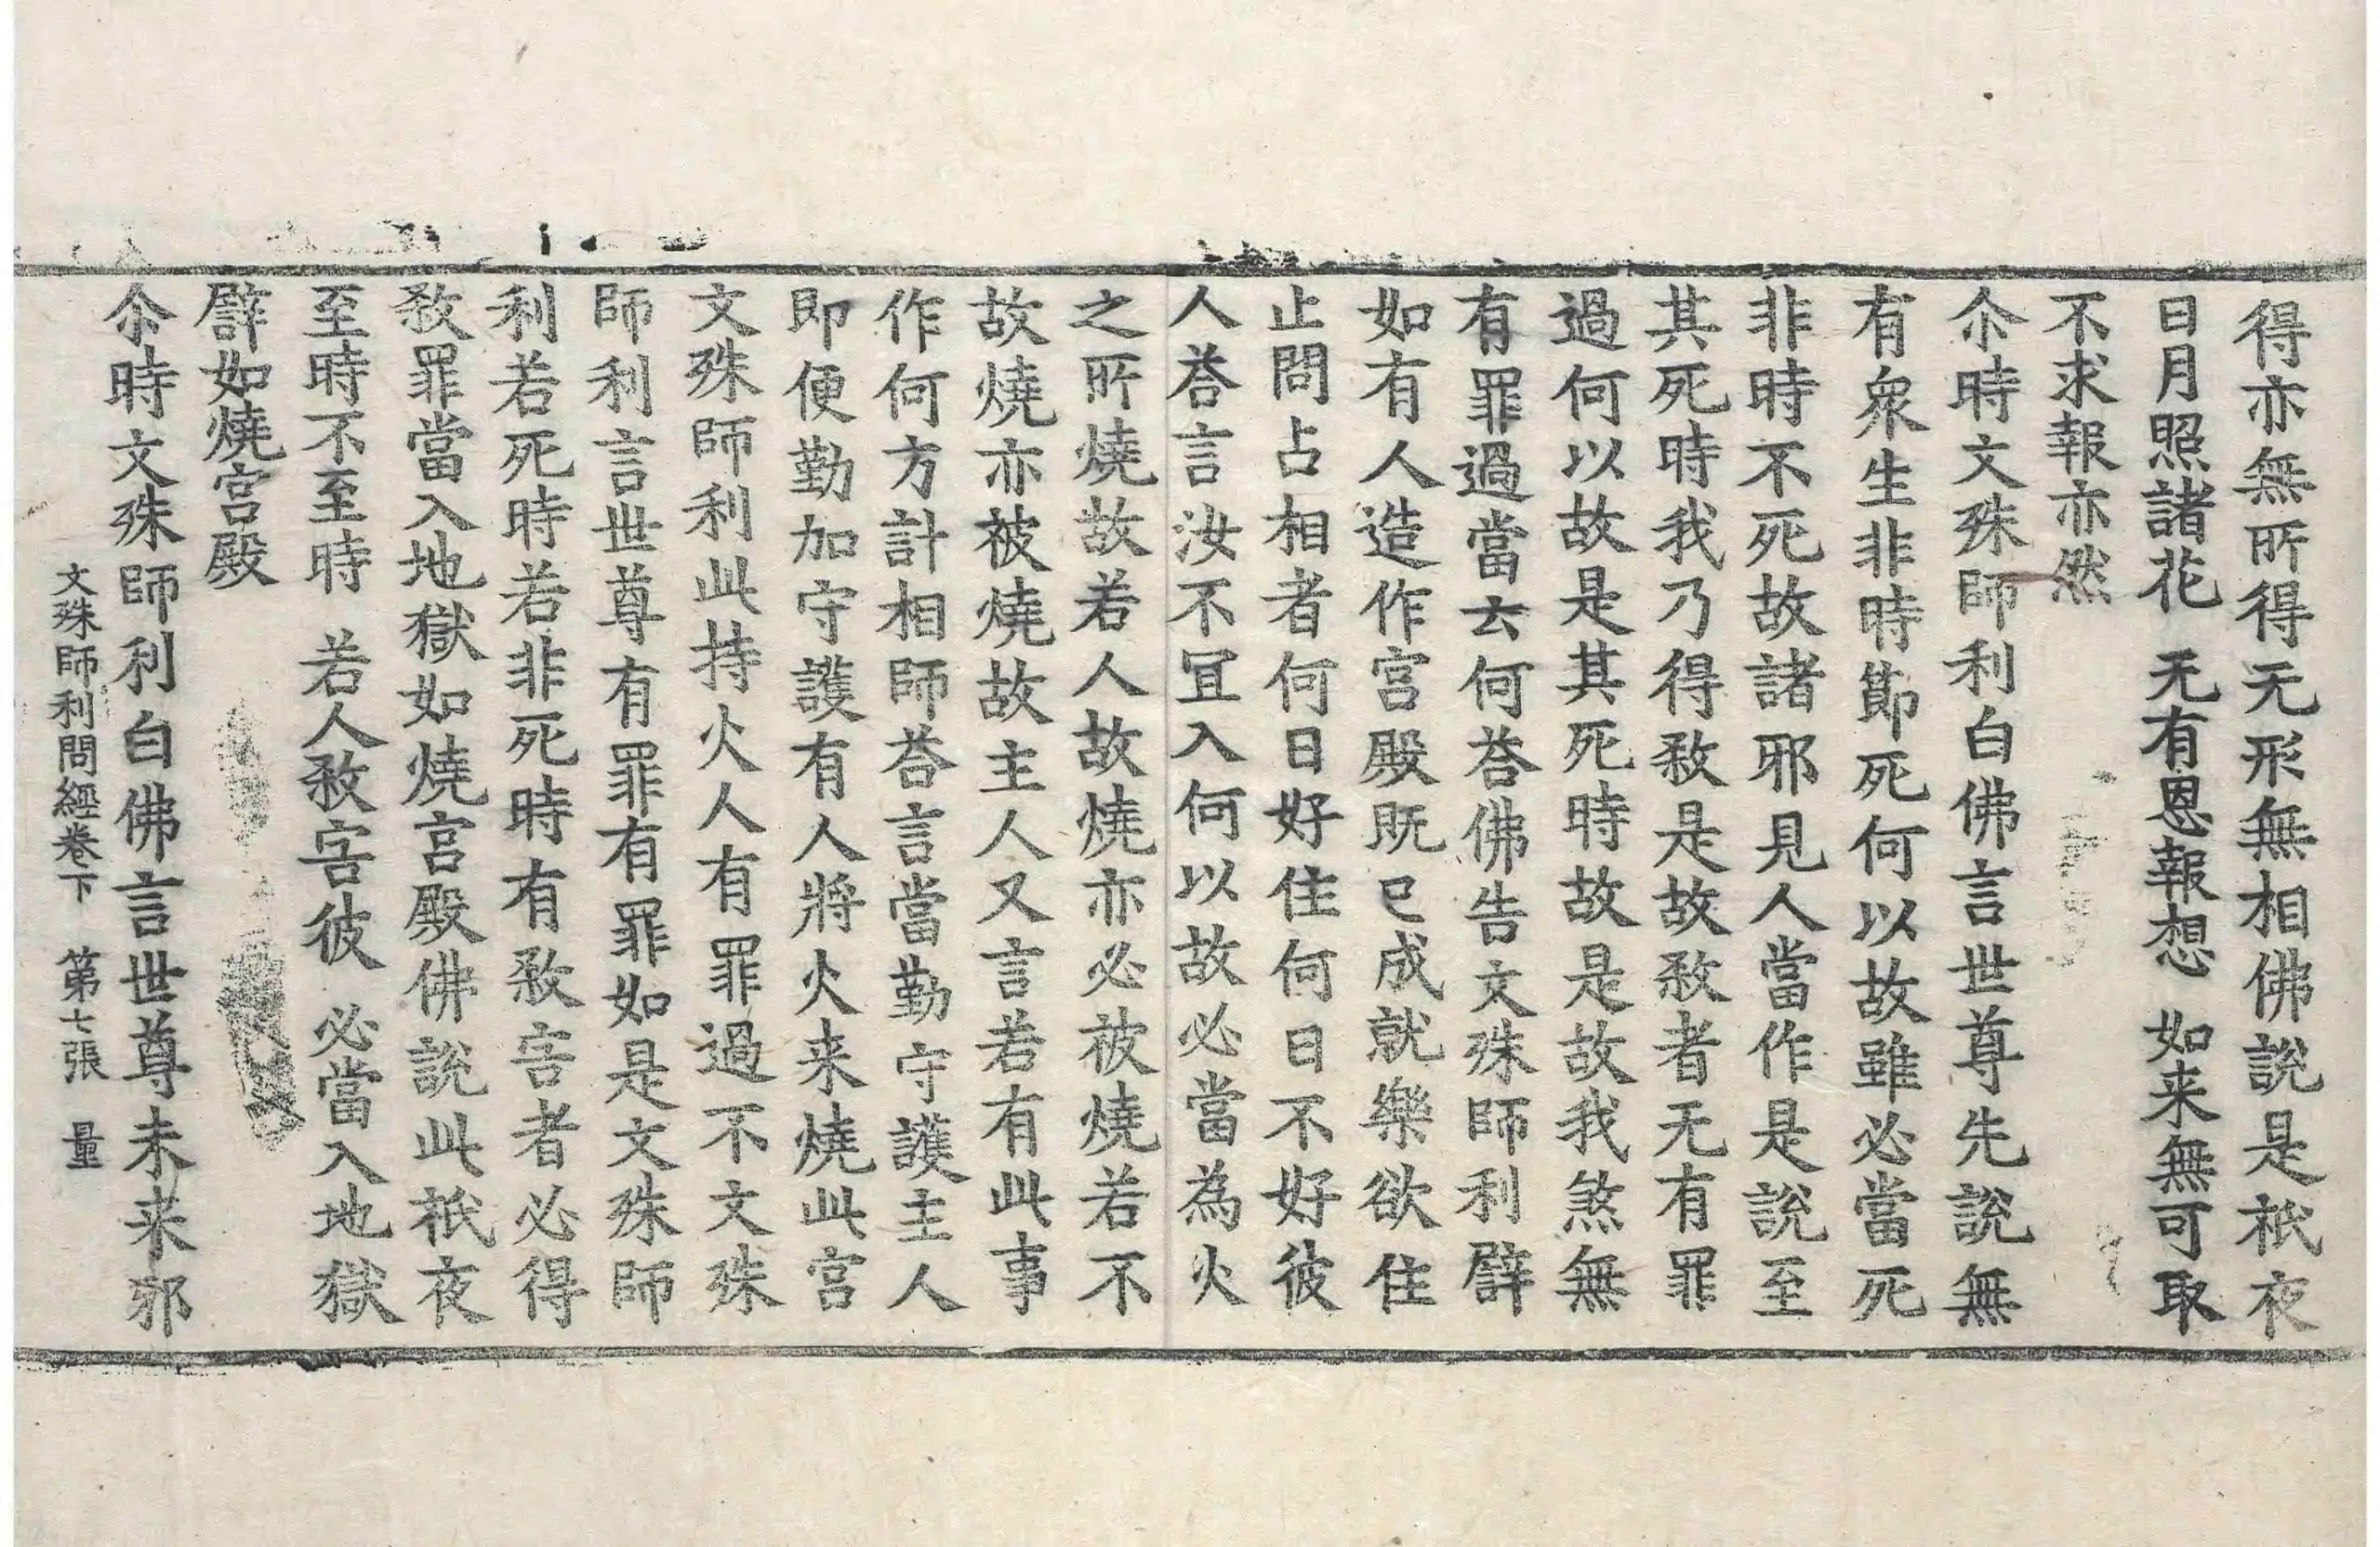 得亦無所得无形無相佛說是祇夜
日月照諸花 无有恩報想 如来無可取
不求報亦然
尒時文殊師利白佛言世尊先說無
有衆生非時節死何以故雖必當死
非時不死故諸邪見人當作是說至
其死時我乃得煞是故煞者无有罪
過何以故是其死時故是故我煞無
有罪過當云何荅佛告文殊師利譬
如有人造作宫殿既已成就樂欲住
止問占相者何日好住何日不好彼
人荅言汝不冝入何以故必當為火
之所燒故若人故燒亦必被燒若不
故燒亦被燒故主人又言若有此事
作何方計相師荅言當勤守護主人
即便勤加守護有人將火来燒此宫
文殊師利此持火人有罪過不文殊
師利言世尊有罪有罪如是文殊師
利若死時若非死時有煞害者必得
煞罪當入地獄如燒宫殿佛說此祇夜
至時不至時 若人煞害彼 必當入地獄
譬如燒宫殿
尒時文殊師利白佛言世尊未来邪
文殊師利問經卷下 第七張 量